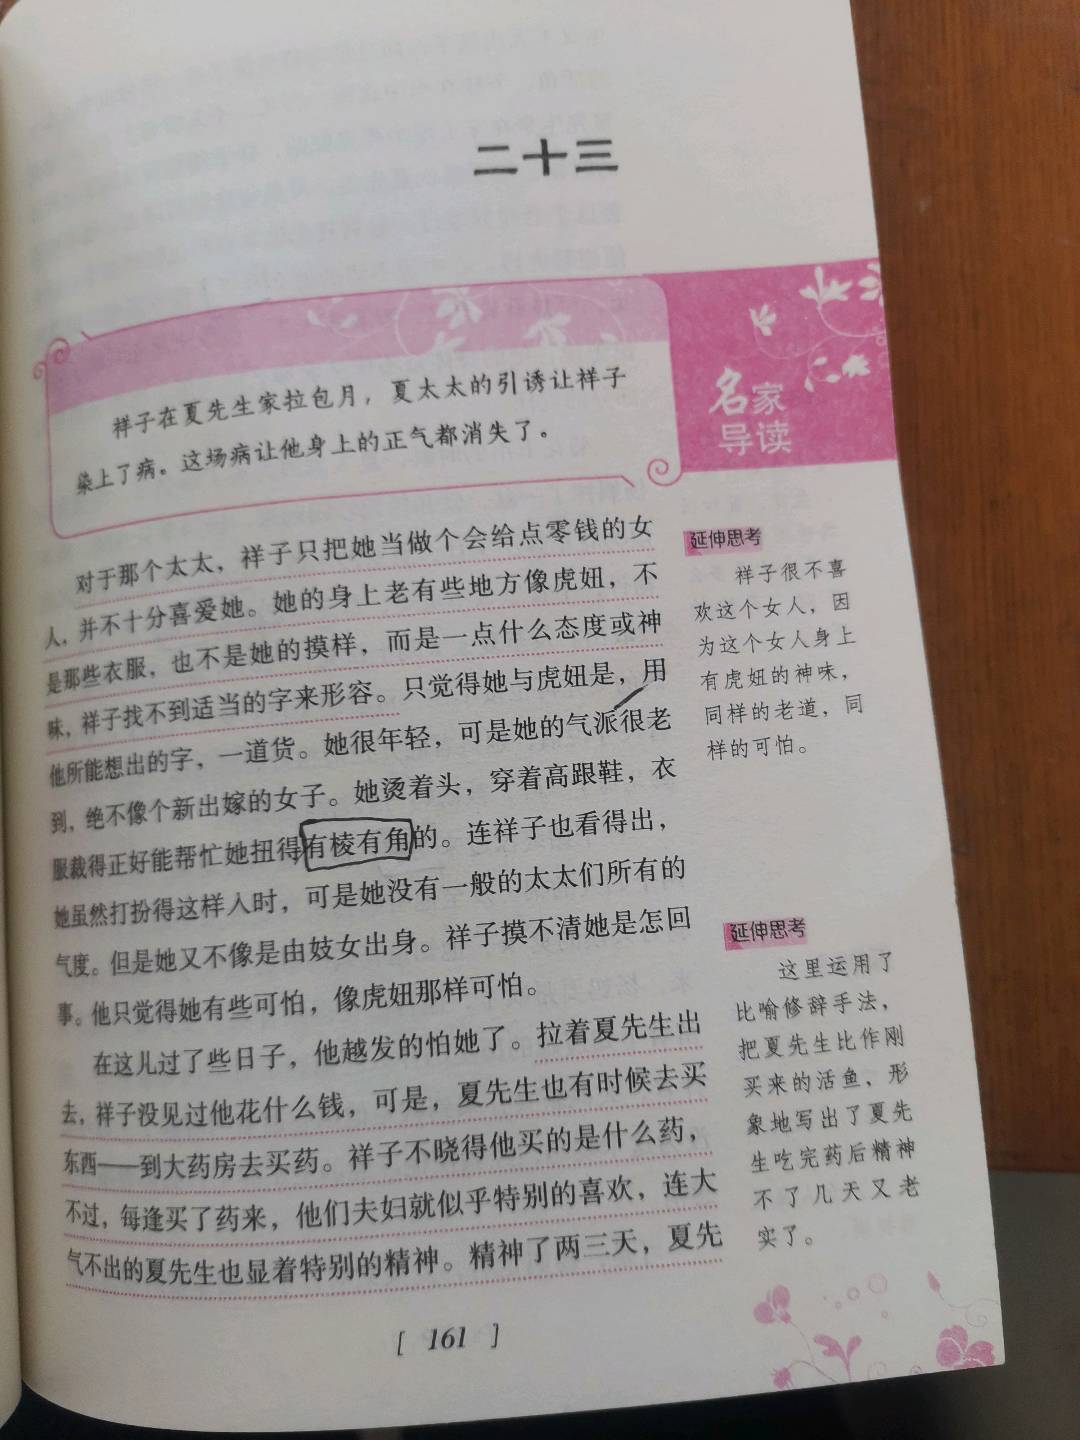 二十三
祥子在夏先生家拉包月，夏太太的引诱让祥子
染上了病。这场病让他身上的正气都消失了。
名家
导读
对于那个太太，祥子只把她当做个会给点零钱的女
人，并不十分喜爱她。她的身上老有些地方像虎妞，不
是那些衣服，也不是她的摸样，而是一点什么态度或神
味，祥子找不到适当的字来形容。只觉得她与虎妞是，用
他所能想出的字，一道货。她很年轻，可是她的气派很老
到，绝不像个新出嫁的女子。她烫着头，穿着高跟鞋，衣
服裁得正好能帮忙她扭得有棱有角的。连祥子也看得出，
她虽然打扮得这样入时，可是她没有一般的太太们所有的
气度。但是她又不像是由妓女出身。祥子摸不清她是怎回
事。他只觉得她有些可怕，像虎妞那样可怕。
在这儿过了些日子，他越发的怕她了。拉着夏先生出
去，祥子没见过他花什么钱，可是，夏先生也有时候去买
东西——到大药房去买药。祥子不晓得他买的是什么药，
不过，每逢买了药来，他们夫妇就似乎特别的喜欢，连大
气不出的夏先生也显着特别的精神。精神了两三天，夏先
延伸思考
祥子很不喜
欢这个女人，因
为这个女人身上
有虎妞的神味，
同样的老道，同
样的可怕。
延伸思考
这里运用了
比喻修辞手法，
把夏先生比作刚
买来的活鱼，形
象地写出了夏先
生吃完药后精神
不了几天又老
实了。
[ 161 ]